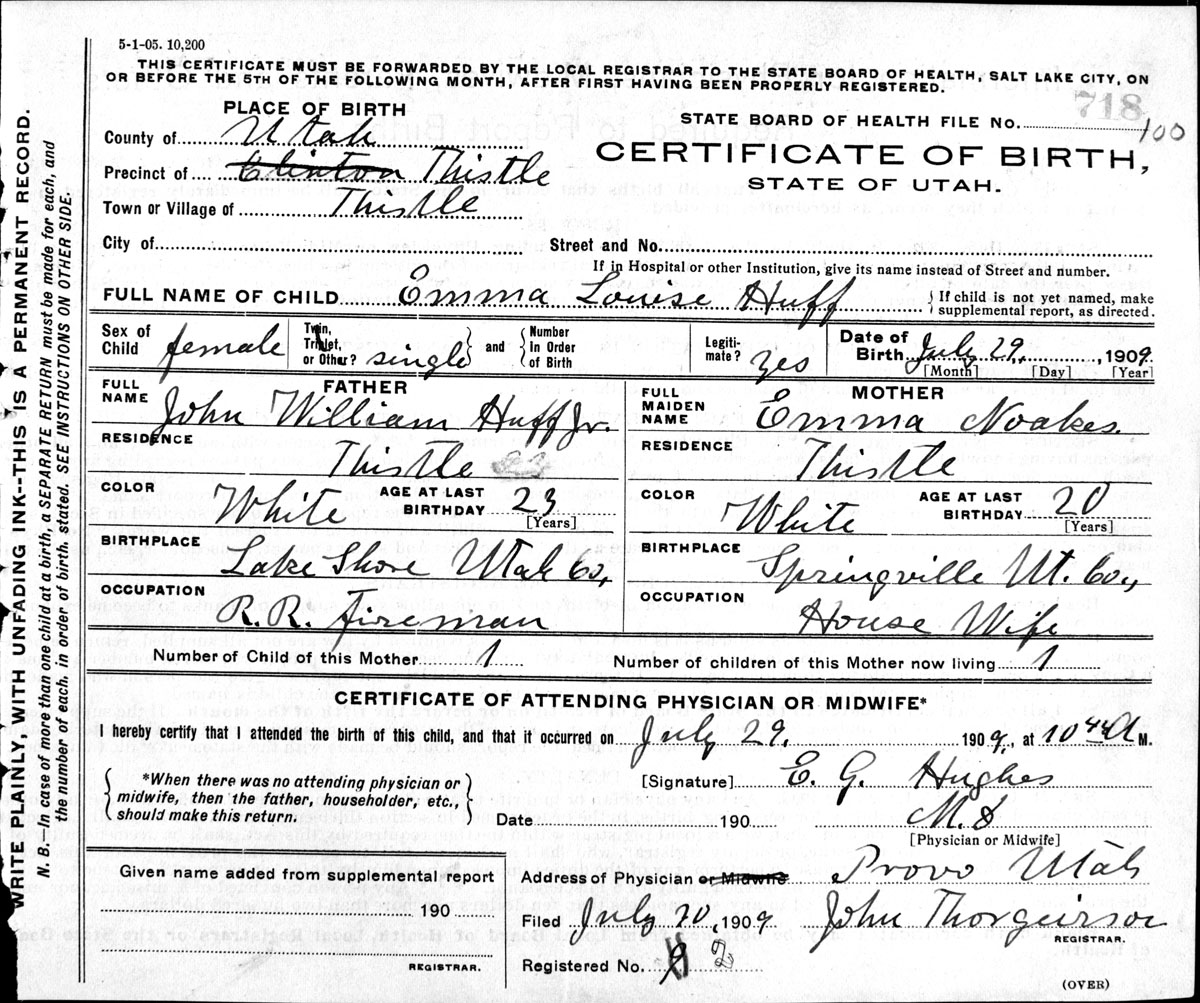 5-1-05. 10,200
THIS CERTIFICATE MUST BE FORWARDED BY THE LOCAL REGISTRAR TO THE STATE BOARD OF HEALTH, SALT LAKE CITY, ON
OR BEFORE THE 5TH OF THE FOLLOWING MONTH, AFTER FIRST HAVING BEEN PROPERLY REGISTERED.
WRITE PLAINLY, WITH UNFADING INK--THIS IS A PERMANENT RECORD.
N. B.--In case of more than one child at a birth, a SEPARATE RETURN must be made for each, and
the number of each, in order of birth, stated. SEE INSTRUCTIONS ON OTHER SIDE.
PLACE OF BIRTH
STATE BOARD OF HEALTH FILE No. 718 100
County of Utah
CERTIFICATE OF BIRTH,
STATE OF UTAH.
Precinct of Clinton Thistle
Town or Village of Thistle
City of Street and No.
If in Hospital or other Institution, give its name instead of Street and number.
FULL NAME OF CHILD Emma Louise Huff { If child is not yet named, make
supplemental report, as directed.
Sex of Child female Twin, Triplet, or Other? single } and { Number In Order of Birth Legiti-mate? yes Date of Birth July 29, 1909.
[Month] [Day] [Year]
FATHER MOTHER
FULL NAME John William Huff Jr. FULL MAIDEN NAME Emma Noakes.
RESIDENCE Thistle RESIDENCE Thistle
COLOR White AGE AT LAST BIRTHDAY 23 [Years] COLOR White AGE AT LAST BIRTHDAY 20 [Years]
BIRTHPLACE Lake Shore Utah Co, BIRTHPLACE Springville Ut. Co.,
OCCUPATION R.R. Fireman OCCUPATION House Wife
Number of Child of this Mother 1 Number of children of this Mother now living 1
CERTIFICATE OF ATTENDING PHYSICIAN OR MIDWIFE*
I hereby certify that I attended the birth of this child, and that it occurred on July 29, 1909, at 10 44 A M.
{ *When there was no attending physician or
midwife, then the father, householder, etc.,
should make this return. }
[Signature] E. G. Hughes
Date 190 M.D
[Physician or Midwife]
Given name added from supplemental report
190
REGISTRAR.
Address of Physician or Midwife Provo Utah
Filed July 20, 1909 John Thorgeirson
REGISTRAR.
Registered No. 2
(OVER)